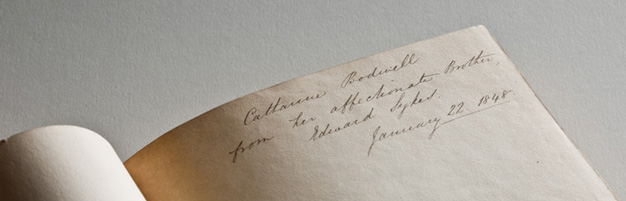 Catharine Bodwell
from her affectionate Brother,
Edward Sykes.
January 22. 1848